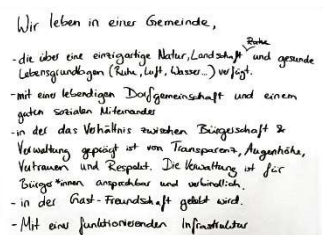 Wir leben in einer Gemeinde,
Ruhe
- die über eine einzigartige Natur, Landschaft und gesunde
Lebensgrundlagen (Ruhe, Luft, Wasser...) verfügt.
- mit einer lebendigen Dorfgemeinschaft und einem
guten sozialen Miteinander
- in der das Verhältnis zwischen Bürgerschaft &
Verwaltung geprägt ist von Transparenz, Augenhöhe,
Vertrauen und Respekt. Die Verwaltung ist für
Bürger*innen ansprechbar und verbindlich.
- in der Gast-Freundschaft gelebt wird.
- Mit einer funktionierenden Infrastruktur